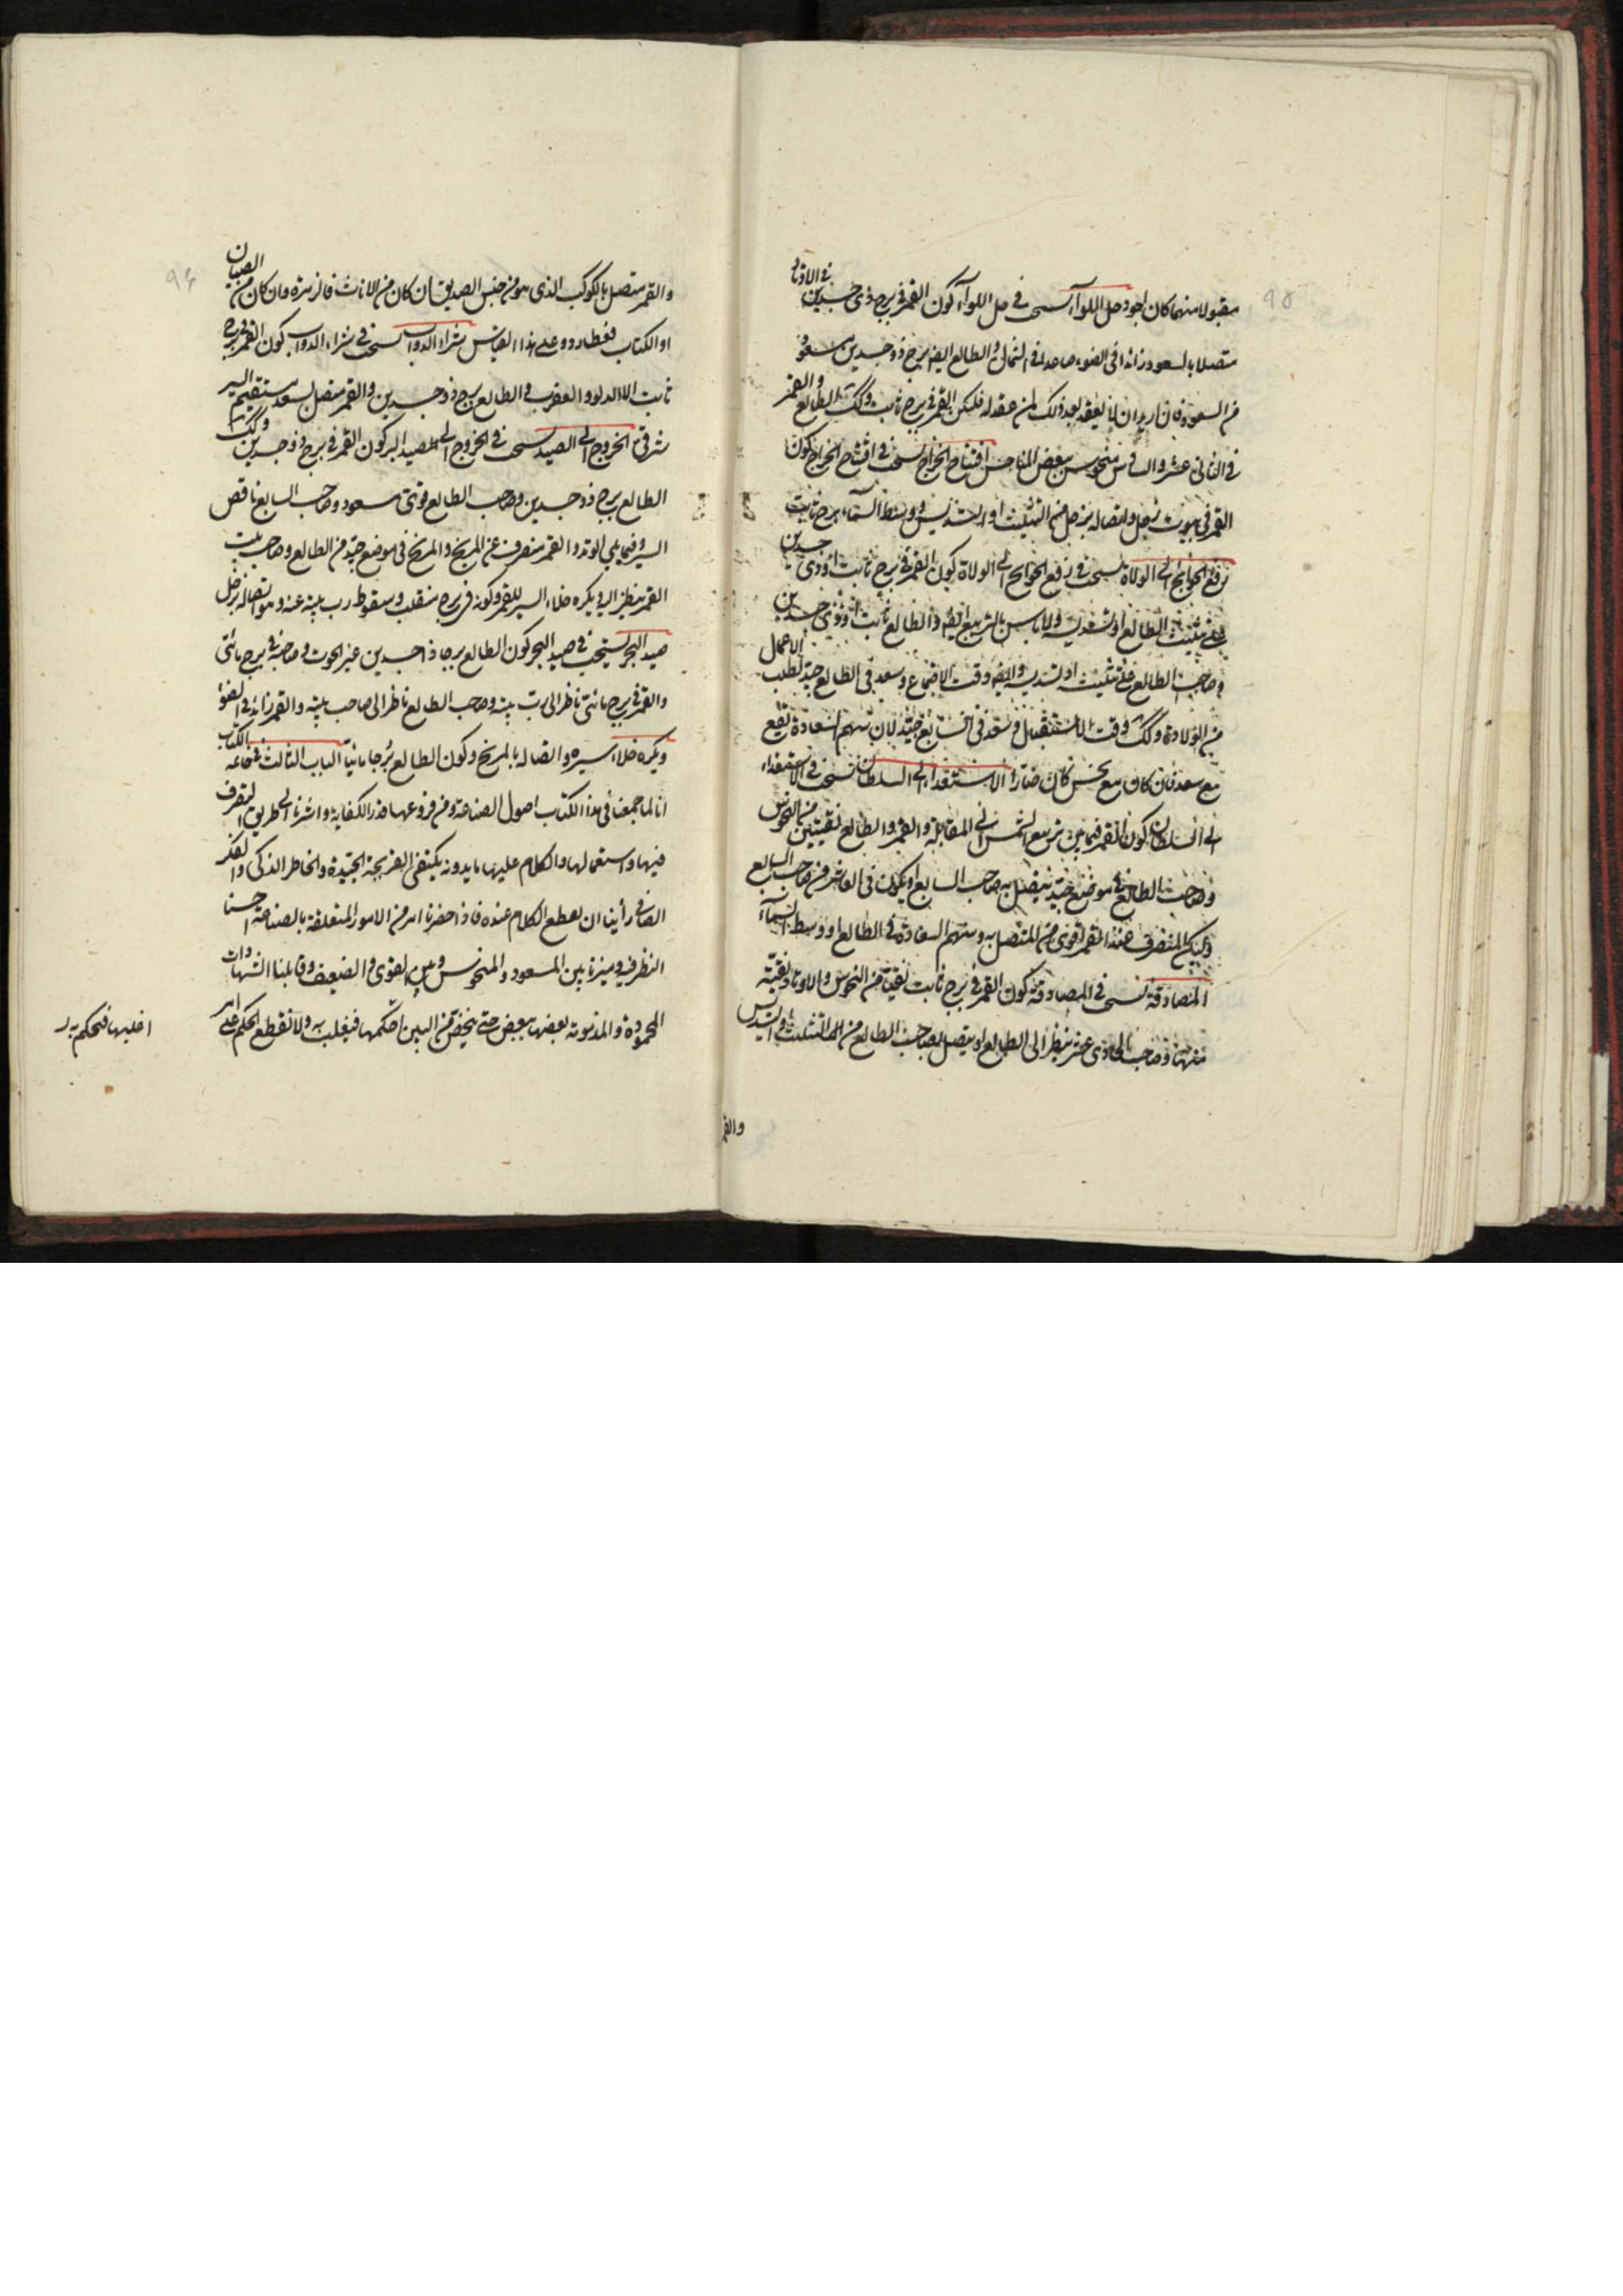 مقبولا منهما كان اجود حل اللوآء يستحب في حل اللوآء كون القمر في برج ذي جسدين في الاوتاد
متصلا بالسعود زائدا في الضوء صاعدا في الشمال والطالع ايضا برج ذو جسدين مسعود
من السعود فان اريد ان لا يعقد بعد ذلك لمن عقد له فليكن القمر في برج ثابت وكك الطالع والقمر
في الثاني عشر والسادس منحوس بعض المناحس افتتاح الخراج يستحب في افتتاح الخراج كون
القمر في بيوت زحل واتصاله بزحل من التثليث او التسديس ووسط السمآء برج ثابت
رفع الحوايج الى الولاة يستحب في رفع الحوايج الى الولاة كون القمر في برج ثابت او ذي جسدين
على تثليث الطالع او تسديسه ولا باس بالتربيع ايضا والطالع ثابت او ذي جسدين
وصاحب الطالع على تثليثه او تسديسه وقت الاجتماع وسعد في الطالع جيد لطلب الاعمال
من الولاة وكك وقت الاستقبال وسعد في السابع جيد لان سهم السعادة يقع
مع سعد فان كان مع نحس كان ضارا الاستعداء الى السلطان يستحب في الاستعداء
الى السلطان كون القمر فيما بين تربيع الشمس الى المقابلة والقمر والطالع نقيين من النحوس
وصاحب الطالع في موضع جيد يتصل به صاحب السابع او يكون في العاشر من صاحب السابع
وليكن المنصرف عنه القمر اقوى من المتصل به وسهم السعادة في الطالع او وسط السمآء
المصادقة يستحب في المصادقة كون القمر في برج ثابت نقيا من النحوس والاوتاد نقية
منها وصاحب الحادي عشر ينظر الى الطالع او يتصل بصاحب الطالع من التثليث والتسديس
والقمر
والقمر متصل بالكوكب الذي هو من جنس الصديق ان كان من الاناث فالزهرة وان كان من الصبيان
او الكتاب فعطارد وعلى هذا القياس شراء الدواب يستحب في شراء الدواب كون القمر في برج
ثابت الا الدلو والعقرب والطالع برج ذو جسدين والقمر متصل بسعد مستقيم السير
شرقي الخروج الى الصيد يستحب في الخروج الى المصيد البر كون القمر في برج ذو جسدين وكك
الطالع برج ذو جسدين وصاحب الطالع قوي مسعود وصاحب السابع ناقص
السير وفيما يلي الوتد والقمر منصرف عن المريخ والمريخ في موضع جيد من الطالع وصاحب بيت
القمر ينظر اليه ويكره خلاء السير للقمر وكونه في برج منقلب وسقوط رب بيته عنه وهو اتصاله بزحل
صيد البحر يستحب في صيد البحر كون الطالع برجا ذا جسدين غير الحوت وصاحبه في برج مائي
والقمر في برج مائي ناظر الى رب بيته وصاحب الطالع ناظر الى صاحب بيته والقمر زائد في الضوء
ويكره خلاء سيره واتصاله بالمريخ وكون الطالع برجا مائيا الباب الثالث في خاتمه الكتاب
انا لما جمعنا في هذا الكتاب اصول الصناعة ومن فروعها قدر الكفاية واشرنا الى طريق التصرف
فيها واستعمالها والكلام عليها بايدونه يكتفى القريحة الجيدة والخاطر الذكي والفكر
الصافي رأينا ان نقطع الكلام عنده فاذا حضرنا امر من الامور المتعلقة بالصناعة احسنا
النظر فيه وميزنا بين المسعود والمنحوس وبين القوي والضعيف وقابلنا الشهادات
المحمودة والمذمومة بعضها ببعض حتى يتمخض من البين احكمها فيغلب به ولا نقطع الحكم على امر
اغلبها فنحكم به